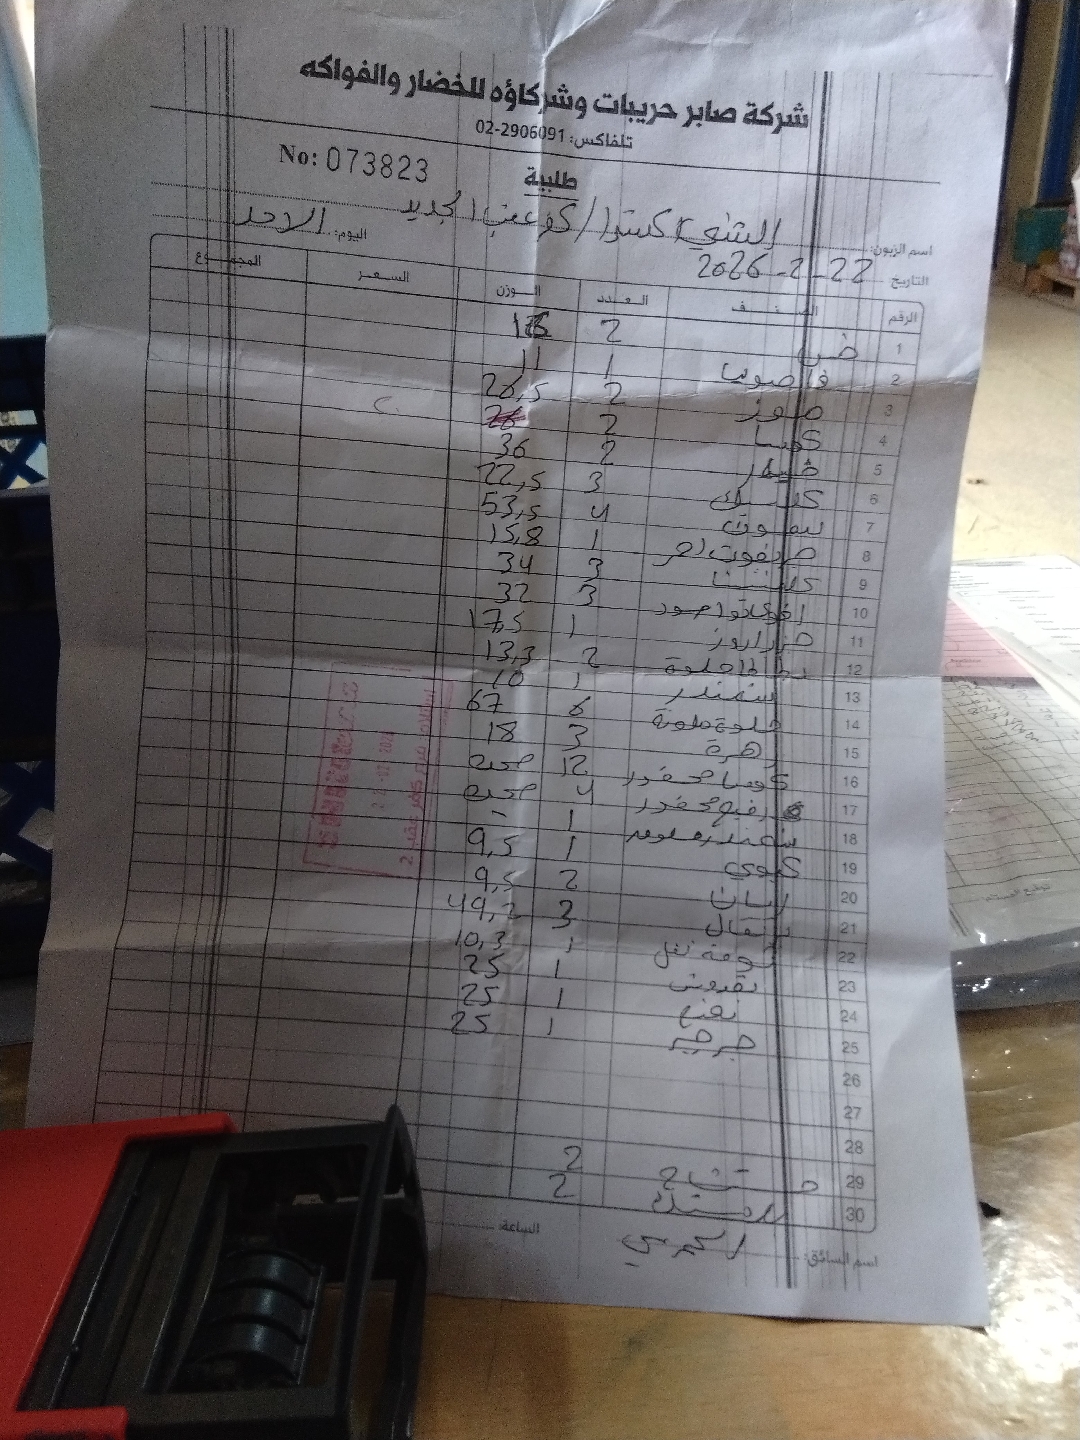 شركة صابر حريبات وشركاؤه للخضار والفواكه
تلفاكس: 02-2906091
No: 073823
طلبية
اسم الزبون: الشني اكسترا / كفر عقب الجديد
التاريخ 22-2-2026 اليوم: الاحد
الرقم الصنف العدد الوزن السعر المجموع
1 خس 2
2 فاصوليا 1 11
3 موز 2 26,5
4 كوسا 2
5 خيار 2 36
6 3 22,5
7 ليمون 4 53,5
8 جريفوت احمر 1 15,8
9 كلمنتينا 3 34
10 افوكادو اسود 3 32
11 1 17,5
12 بطاطا حلوة 2 13,3
13 شمندر 1 10
14 حلوة ملونة 6 67
15 زهرة 3 18
16 كوسا محفور 12 صحن
17 محفور 4 صحن
18 شمندر 1 -
19 كيوي 1 9,5
20 2 9,5
21 برتقال 3 49,2
22 1 10,3
23 بقدونس 1 25
24 نعنع 1 25
25 جرجير 1 25
26
27
28
29 2
30 2
اسم السائق: الساعة: